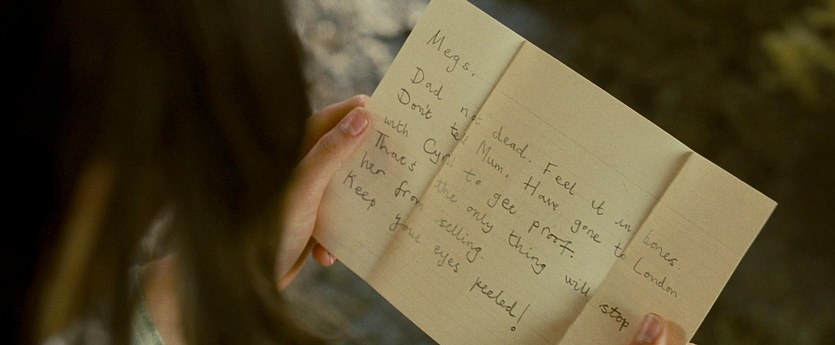 Megs,
Dad not dead. Feel it in bones.
Don't tell Mum. Have gone to London
with Cyril to get proof.
That's the only thing will stop
her from selling.
Keep your eyes peeled!